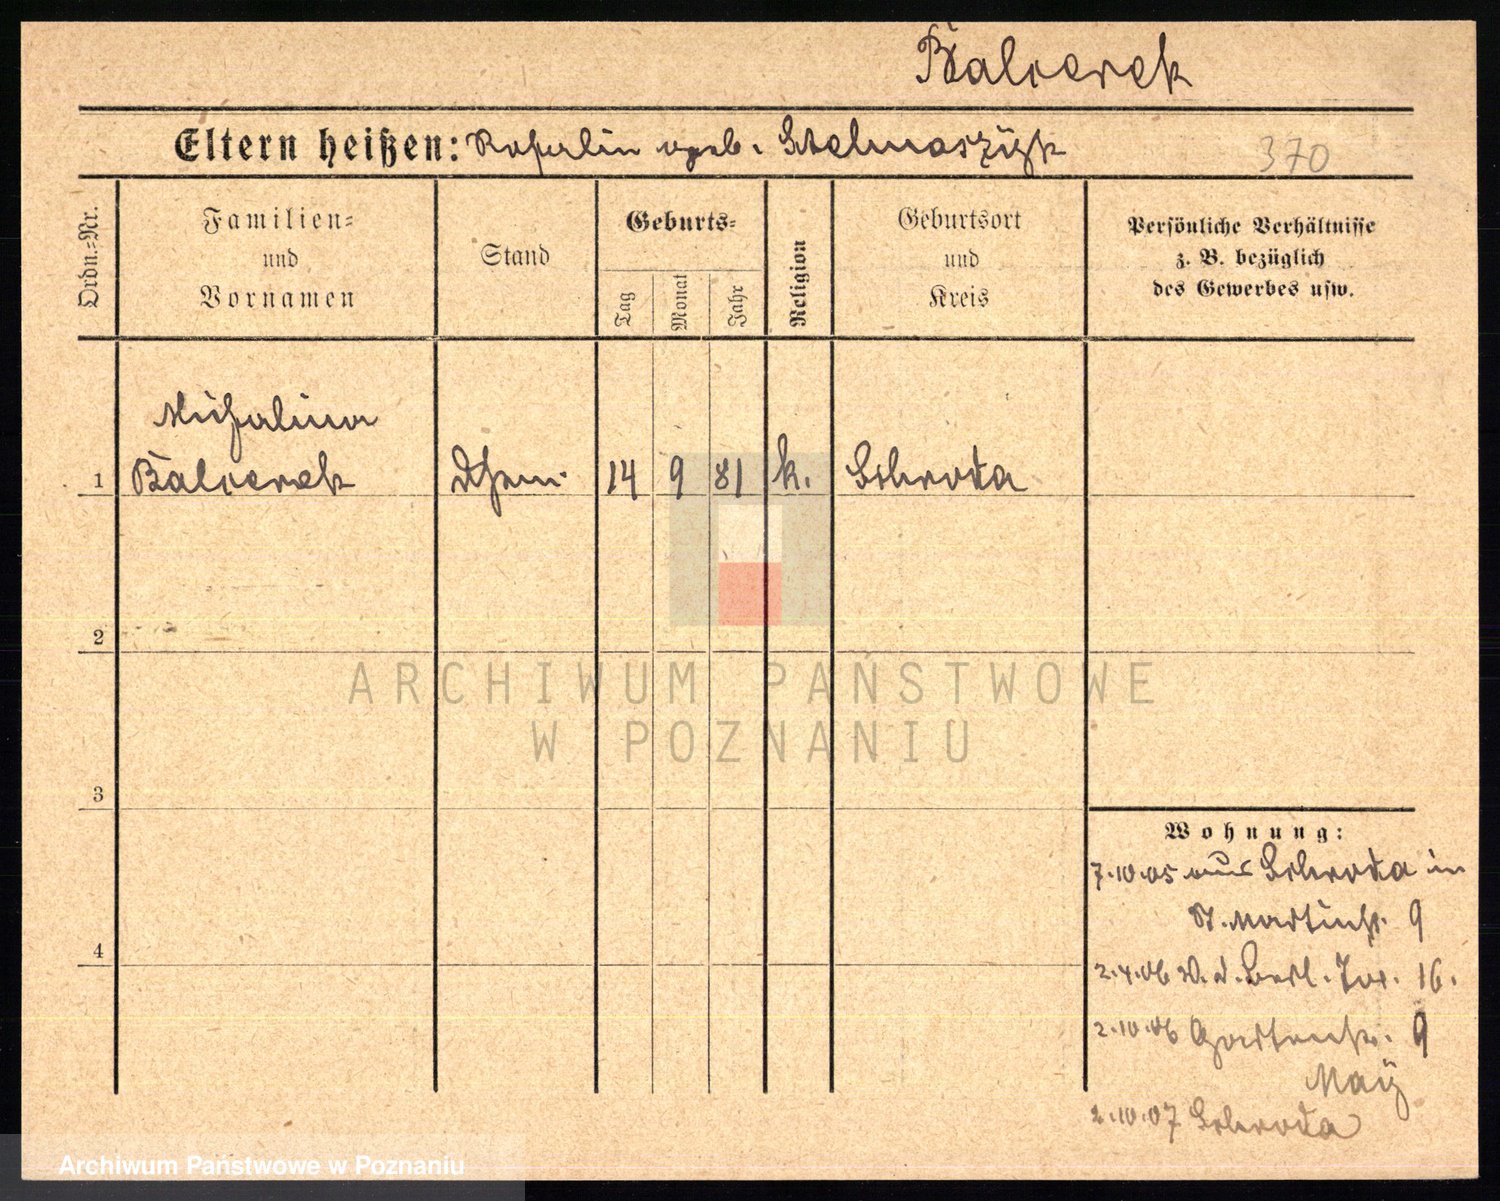 Balcerek
Eltern heißen: Rosalin geb. Stelmaszÿk
370
Ordn.=Nr.
Familien=
und
Vornamen
Stand
Geburts=
Tag
Monat
Jahr
Religion
Geburtsort
und
Kreis
Persönliche Verhältnisse
z. B. bezüglich
des Gewerbes usw.
Michalina
1 Balcerek 14 9 81 k. Schroda
2
3
4
ARCHIWUM PAŃSTWOWE
W POZNANIU
Wohnung:
7.10.05 aus Schroda in
St. Martinstr. 9
2.4.06 V. d. Berl. Tor. 16.
2.10.06 Gartenstr. 9
Maÿ
2.10.07 Schroda
Archiwum Państwowe w Poznaniu